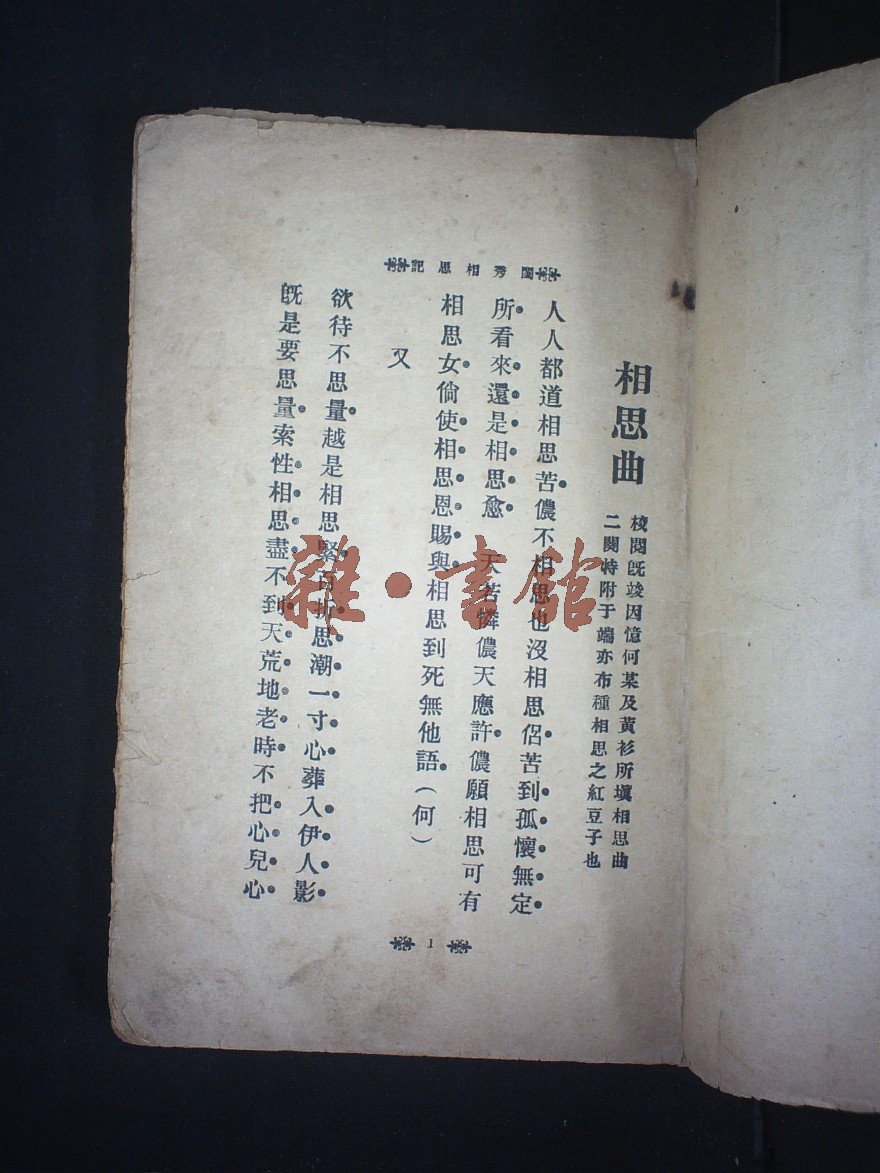 閨秀相思記
相思曲
校閱既竣因憶何某及黃衫所塡相思曲
二闋特附于端亦布種相思之紅豆子也
人人都道相思苦儂不相思也沒相思侶苦到孤懷無定
所看來還是相思愈 天若憐儂天應許儂願相思可有
相思女倘使相思恩賜與相思到死無他語(何)
又
欲待不思量越是相思緊百折思潮一寸心葬入伊人影
既是要思量索性相思盡不到天荒地老時不把心兒心
1
雜·書館